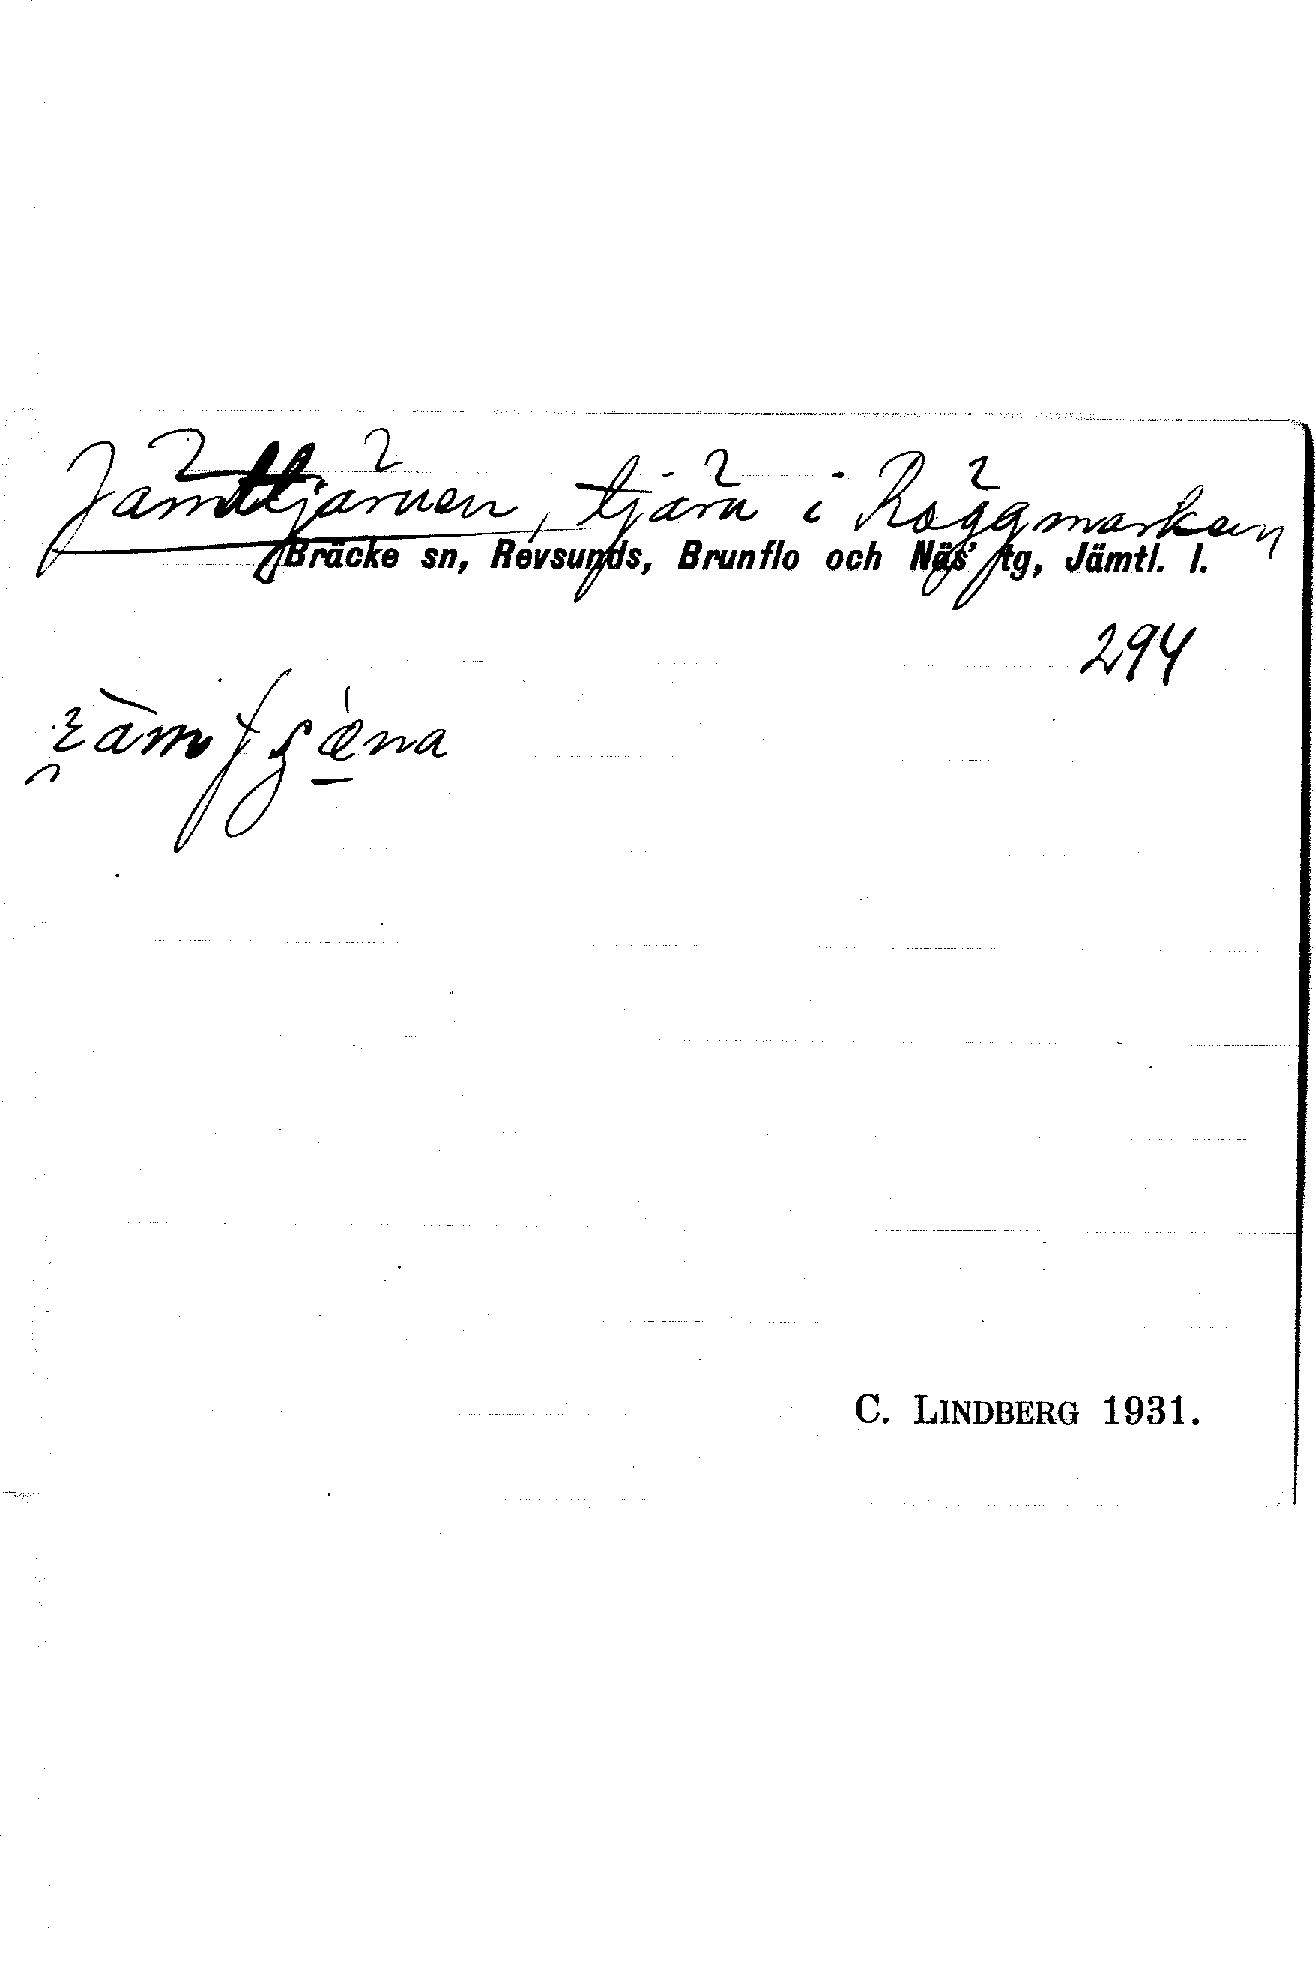 Jämttjärnen, tjärn i Röggmarken
Bräcke sn, Revsunds, Brunflo och Näs' tg, Jämtl. l.
294
C. LINDBERG 1931.